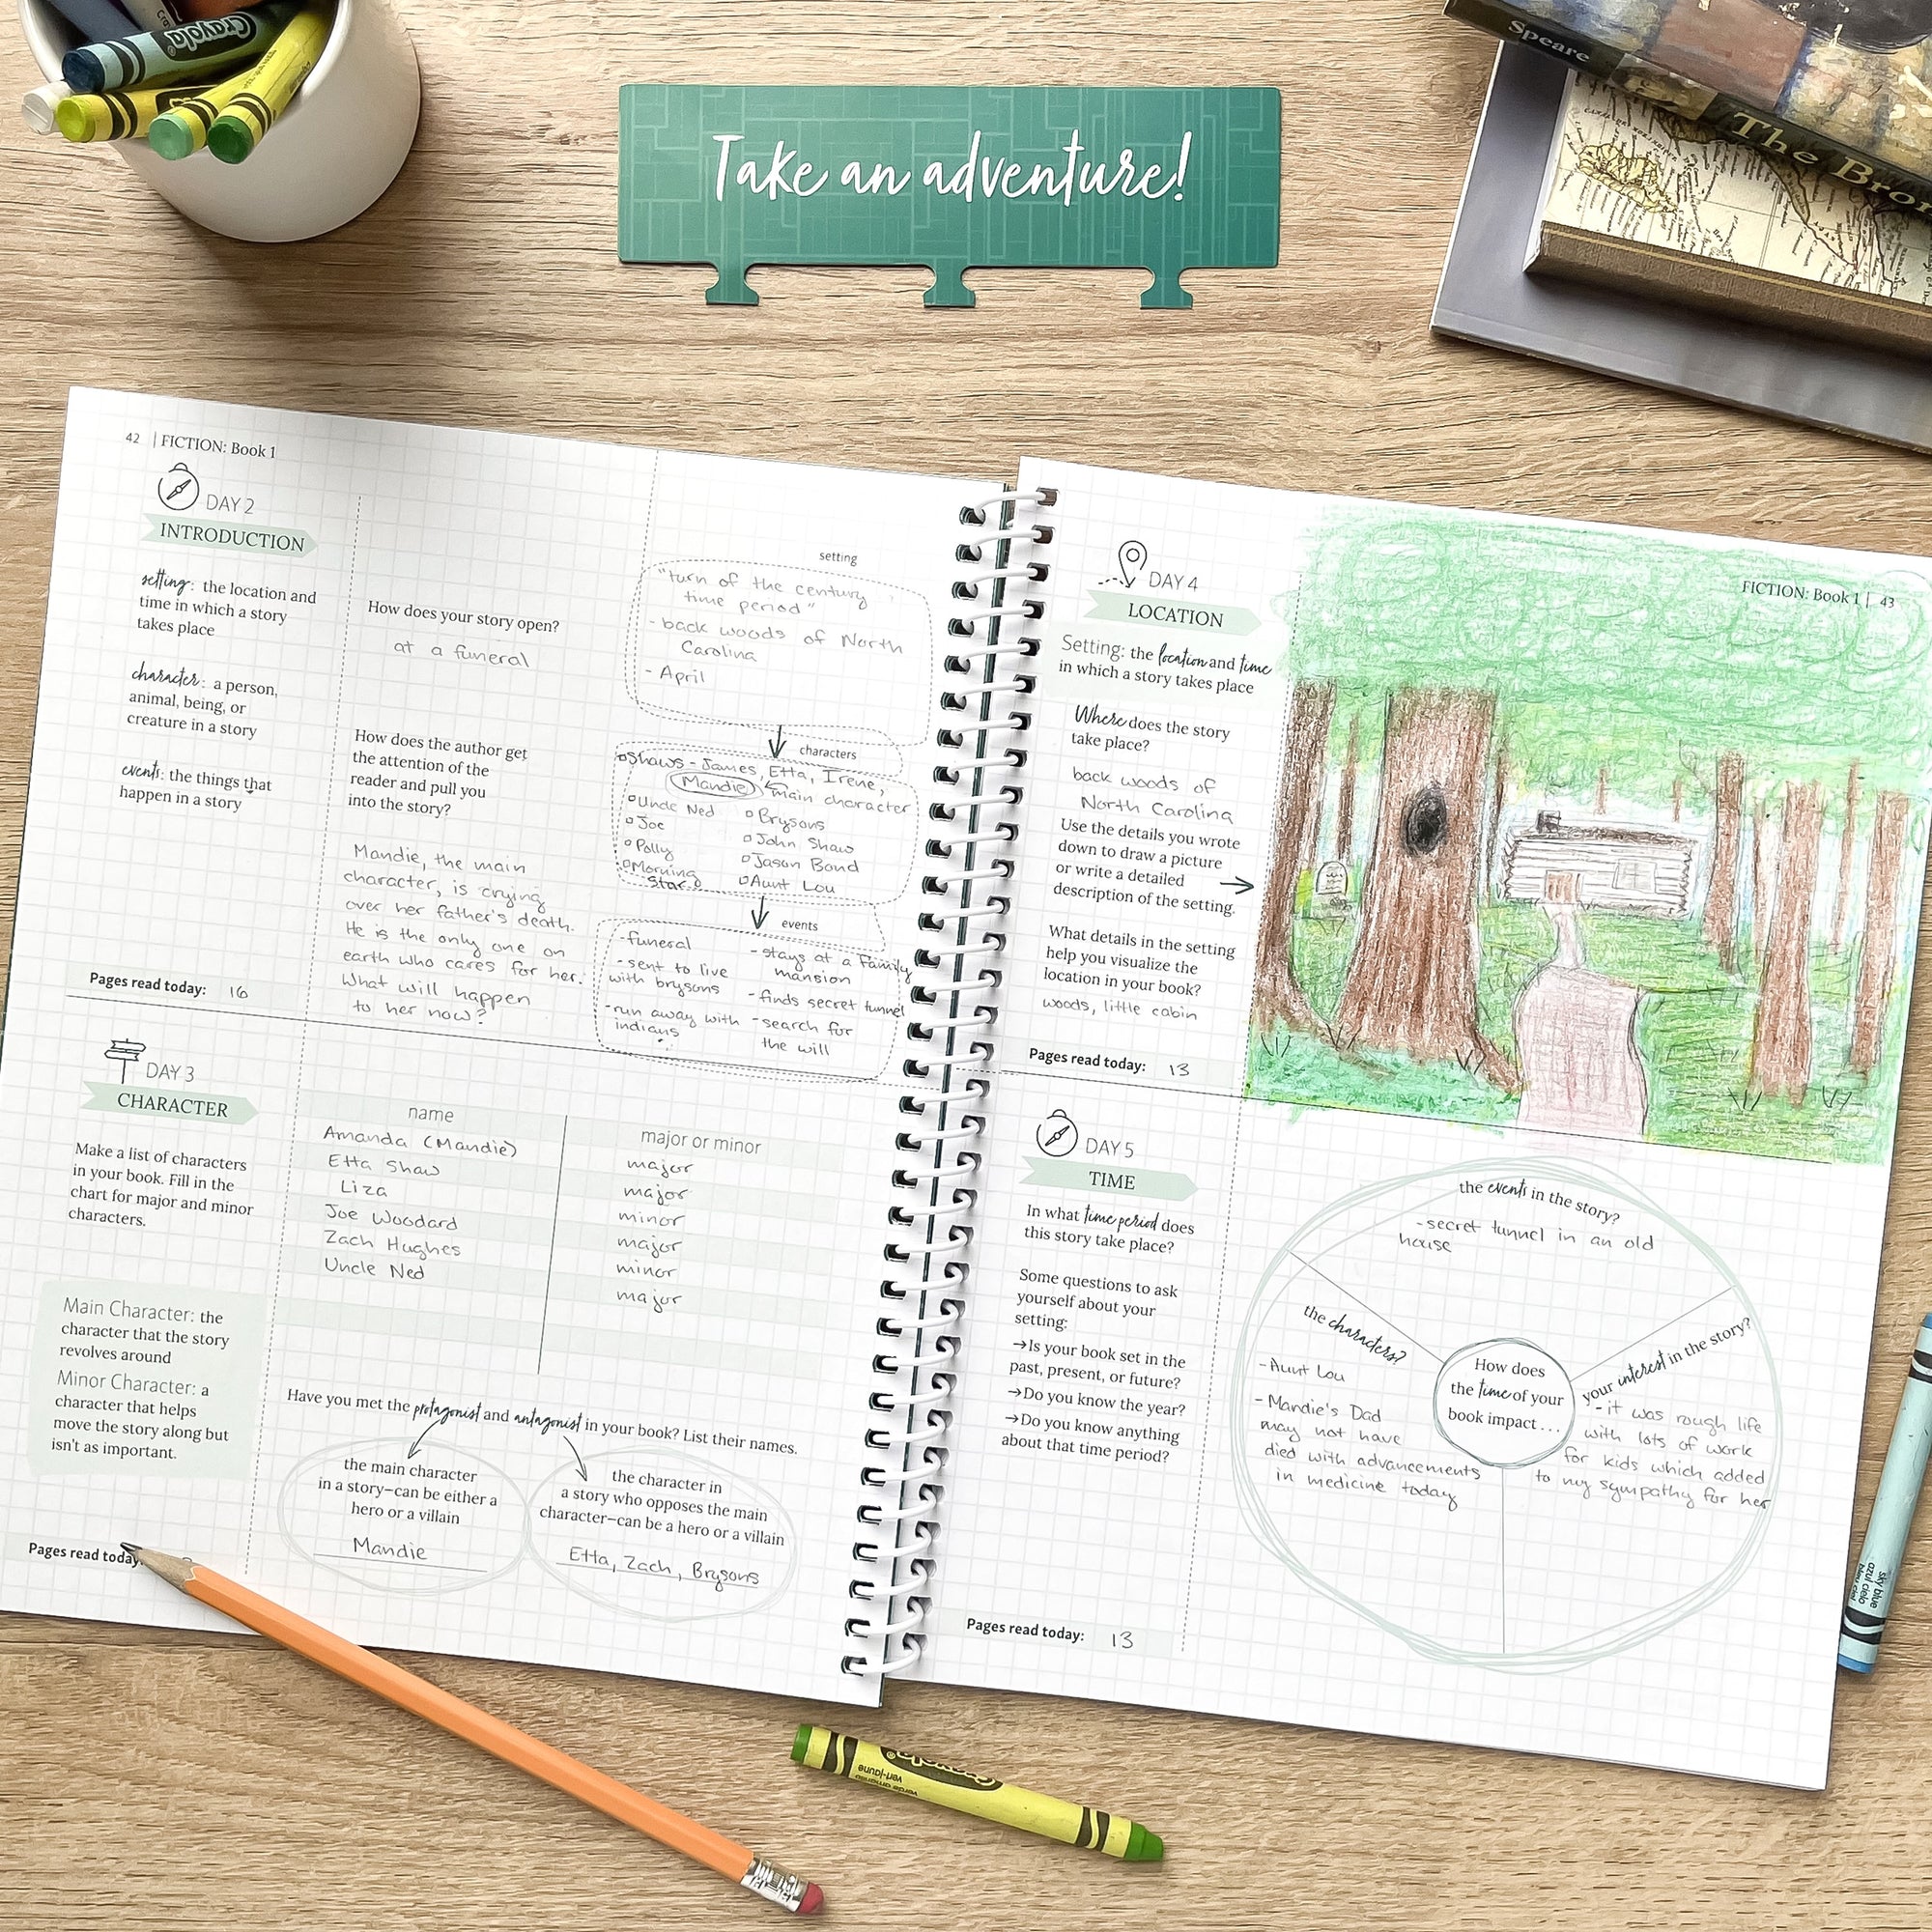 Crayola
Take an adventure!
Speare
The Bron
42 | FICTION: Book 1
DAY 2
INTRODUCTION
setting: the location and
time in which a story
takes place
character: a person,
animal, being, or
creature in a story
events: the things that
happen in a story
Pages read today: 16
How does your story open?
at a funeral
How does the author get
the attention of the
reader and pull you
into the story?
Mandie, the main
character, is crying
over her father's death.
He is the only one on
earth who cares for her.
What will happen
to her now?
setting
"turn of the century
time period"
- back woods of North
Carolina
- April
characters
Shaws - James, Etta, Irene,
Mandie main character
Uncle Ned
Joe
Polly
Morning
Star
Brysons
John Shaw
Jason Bond
Aunt Lou
events
- funeral
- sent to live
with brysons
- run away with
indians
- stays at a family
mansion
- finds secret tunnel
- search for
the will
DAY 3
CHARACTER
Make a list of characters
in your book. Fill in the
chart for major and minor
characters.
Main Character: the
character that the story
revolves around
Minor Character: a
character that helps
move the story along but
isn't as important.
Pages read today:
name major or minor
Amanda (Mandie) major
Etta Shaw major
Liza minor
Joe Woodard major
Zach Hughes minor
Uncle Ned major
Have you met the protagonist and antagonist in your book? List their names.
the main character
in a story—can be either a
hero or a villain
Mandie
the character in
a story who opposes the main
character—can be a hero or a villain
Etta, Zach, Brysons
FICTION: Book 1 | 43
DAY 4
LOCATION
Setting: the location and time
in which a story takes place
Where does the story
take place?
back woods of
North Carolina
Use the details you wrote
down to draw a picture
or write a detailed
description of the setting.
What details in the setting
help you visualize the
location in your book?
woods, little cabin
Pages read today: 13
DAY 5
TIME
In what time period does
this story take place?
Some questions to ask
yourself about your
setting:
→Is your book set in the
past, present, or future?
→Do you know the year?
→Do you know anything
about that time period?
Pages read today: 13
the events in the story?
- secret tunnel in an old
house
the characters?
- Aunt Lou
- Mandie's Dad
may not have
died with advancements
in medicine today
How does
the time of your
book impact...
your interest in the story?
- it was rough life
with lots of work
for kids which added
to my sympathy for her
sky blue
azul cielo
Crayola
vert-jaune
verde amarillo